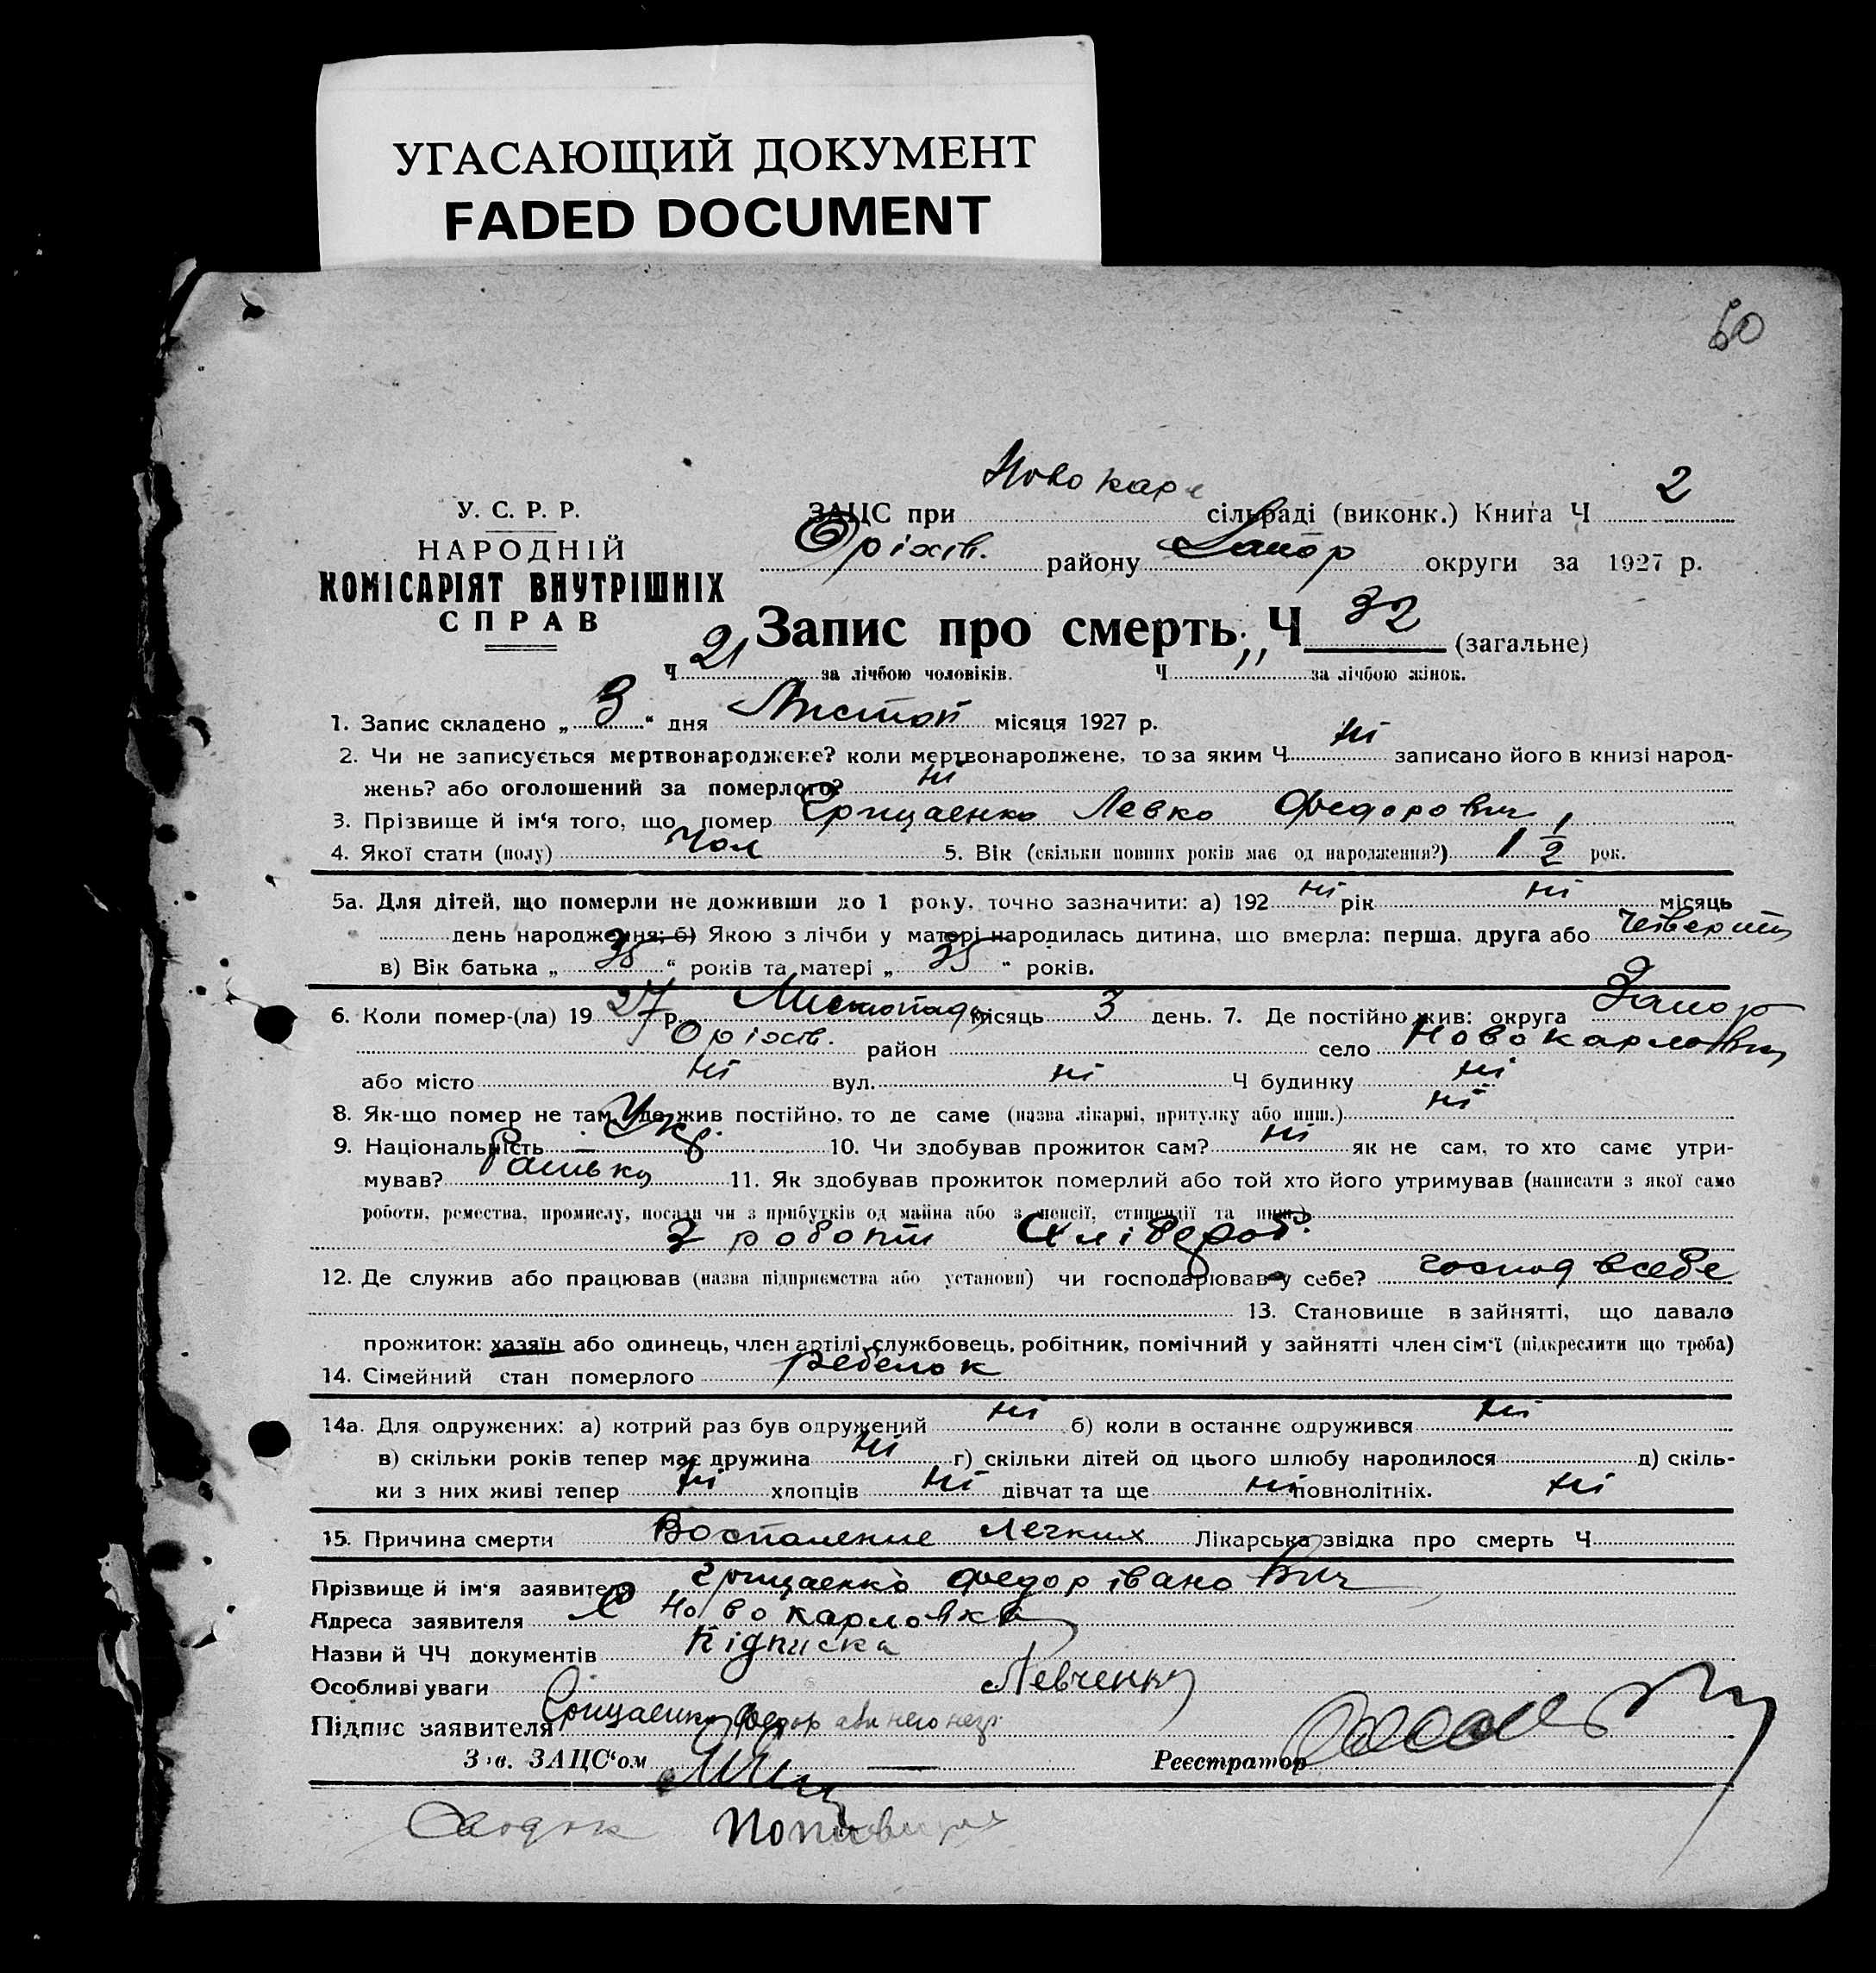 УГАСАЮЩИЙ ДОКУМЕНТ
FADED DOCUMENT
60
У. С. Р. Р.
НАРОДНІЙ
КОМІСАРІЯТ ВНУТРІШНІХ
СПРАВ
ЗАЦС при Новокар сільраді (виконк.) Книга Ч 2
Оріхів. району Запор округи за 1927 р.
Запис про смерть Ч 32 (загальне)
Ч 21 за лічбою чоловіків. Ч „ за лічбою жінок.
1. Запис складено „ 3 “ дня Листоп місяця 1927 р.
2. Чи не записується мертвонароджене? коли мертвонароджене, то за яким Ч ні записано його в книзі народ-
жень? або оголошений за померлого? ні
3. Прізвище й ім'я того, що помер Грицаенко Левко Федорович
4. Якої стати (полу) Чол 5. Вік (скільки повних років має од народження?) 1 1/2 рок.
5а. Для дітей, що померли не доживши до 1 року, точно зазначити: а) 192 ні рік ні місяць
день народження; б) Якою з лічби у матері народилась дитина, що вмерла: перша, друга або
в) Вік батька „ 35 “ років та матері „ 35 “ років.
6. Коли помер-(ла) 19 27 р. Листопада місяць 3 день. 7. Де постійно жив: округа Запор
Оріхів. район село Новокарловка
або місто ні вул. ні Ч будинку ні
8. Як-що помер не там, де жив постійно, то де саме (назва лікарні, притулку або инш.) ні
9. Національність Укр. 10. Чи здобував прожиток сам? ні як не сам, то хто саме утри-
мував? 11. Як здобував прожиток померлий або той хто його утримував (написати з якої само
роботи, ремества, промислу, посади чи з прибутків од майна або з пенсії, стипендії та инш.)
З роботи Хлібороб.
12. Де служив або працював (назва підприємства або установи) чи господарював у себе? господ в себе
13. Становище в зайнятті, що давало
прожиток: хазяїн або одинець, член артілі, службовець, робітник, помічний у зайнятті член сім'ї (підкреслити що треба)
14. Сімейний стан померлого ребенок
14а. Для одружених: а) котрий раз був одружений ні б) коли в останнє одружився ні
в) скільки років тепер має дружина ні г) скільки дітей од цього шлюбу народилося д) скіль-
ки з них живі тепер ні хлопців ні дівчат та ще ні повнолітніх. ні
15. Причина смерти Воспаление легких Лікарська звідка про смерть Ч
Прізвище й ім'я заявителя Грицаенко Федор Іванович
Адреса заявителя С Новокарловка
Назви й ЧЧ документів Підписка
Особливі уваги Левченко
Підпис заявителя Грицаенко Федор
Зав. ЗАЦС'ом Реєстратор